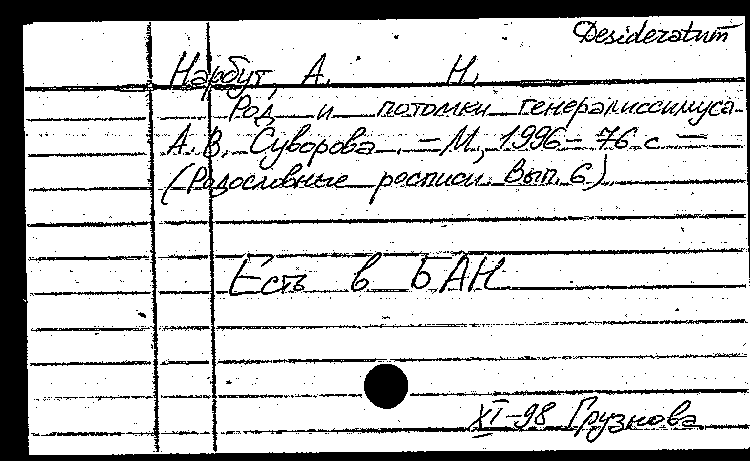 Desideratum
Нарбут, А. Н.
Род и потомки генералиссимуса
А.В. Суворова. – М., 1996 – 76 с –
(Родословные росписи. Вып. 6)
Есть в БАН
XI-98 Грузнова